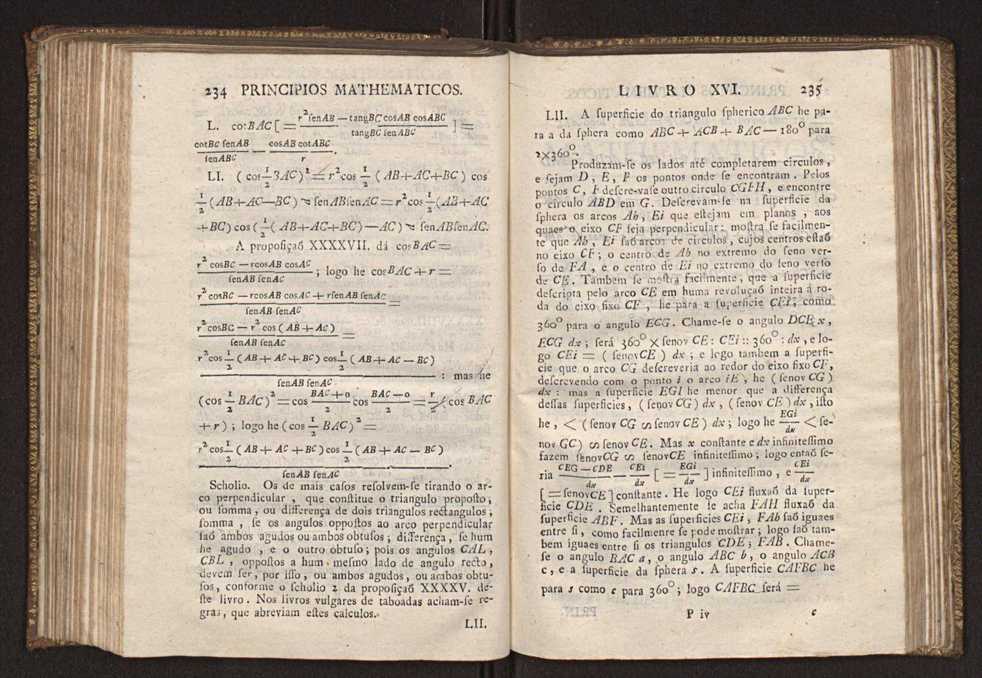 234 PRINCIPIOS MATHEMATICOS.
L. cotBAC [ = (r²senAB — tangBC cosAB cosABC) / (tangBC senABC) ] =
cotBC senAB / senABC — cosAB cotABC / r .
LI. ( cos 1/2 BAC )² = r²cos 1/2 ( AB+AC+BC ) cos
1/2 (AB+AC—BC) ÷ senABsenAC = r²cos 1/2 (AB+AC
+BC) cos ( 1/2 (AB+AC+BC) — AC ) ÷ senABsenAC.
A proposiçaõ XXXXVII. dá cosBAC =
(r²cosBC — rcosAB cosAC) / (senAB senAC) ; logo he cosBAC + r =
(r²cosBC — rcosAB cosAC + rsenAB senAC) / (senAB senAC) =
(r²cosBC — r²cos ( AB + AC )) / (senAB senAC) =
(r²cos 1/2 ( AB + AC + BC ) cos 1/2 ( AB + AC — BC )) / (senAB senAC) : mas he
(cos 1/2 BAC)² = cos (BAC + o)/2 cos (BAC — o)/2 = r/2 (cos BAC
+ r) ; logo he (cos 1/2 BAC)² =
(r²cos 1/2 ( AB + AC + BC ) cos 1/2 ( AB + AC — BC )) / (senAB senAC) .
Scholio. Os de mais casos resolvem-se tirando o ar-
co perpendicular , que constitue o triangulo proposto,
ou somma , ou differença de dois triangulos rectangulos ;
somma , se os angulos oppostos ao arco perpendicular
saõ ambos agudos ou ambos obtusos ; differença , se hum
he agudo , e o outro obtuso ; pois os angulos CAL ,
CBL , oppostos a hum mesmo lado de angulo recto,
devem ser, por isso , ou ambos agudos , ou ambos obtu-
sos, conforme o scholio 2 da proposiçaõ XXXXV. de-
ste livro. Nos livros vulgares de taboadas acham-se re-
gras , que abreviam estes calculos.
LII.
LIVRO XVI. 235
LII. A superficie do triangulo spherico ABC he pa-
ra a da sphera como ABC + ACB + BAC — 180° para
2×360°.
Produzam-se os lados até completarem circulos ,
e sejam D , E , F os pontos onde se encontram . Pelos
pontos C , F descreva-se outro circulo CGFH , e encontre
o circulo ABD em G. Descrevam-se na superficie da
sphera os arcos Ab , Ei que estejam em planos , aos
quaes o eixo CF seja perpendicular : mostra se facilmen-
te que Ab , Ei saõ arcos de circulos , cujos centros estaõ
no eixo CF ; o centro de Ab no extremo do seno ver-
so de FA , e o centro de Ei no extremo do seno verso
de CE . Tambem se mostra facilmente , que a superficie
descripta pelo arco CE em huma revoluçaõ inteira á ro-
da do eixo fixo CF , he para a superficie CEi , como
360° para o angulo ECG . Chame-se o angulo DCE x ,
ECG dx ; será 360° × senov CE : CEi :: 360° : dx , e lo-
go CEi = ( senovCE ) dx ; e logo tambem a superfi-
cie que o arco CG descreveria ao redor do eixo fixo CF ,
descrevendo com o ponto i o arco iE , he ( senov CG )
dx : mas a superficie EGI he menor que a differença
dessas superficies , ( senovCG ) dx , ( senov CE ) dx , isto
he , < ( senov CG ∽ senov CE ) dx ; logo he EGi/dx < se-
nov GC) ∽ senov CE . Mas x constante e dx infinitessimo
fazem senovCG ∽ senovCE infinitessimo ; logo entaõ se-
ria (CEG — CDE)/dx — CEi/dx [ = EGi/dx ] infinitessimo , e CEi/dx
[ = senovCE ] constante . He logo CEi fluxaõ da super-
ficie CDE . Semelhantemente se acha FAH fluxaõ da
superficie ABF . Mas as superficies CEi , FAb saõ iguaes
entre si , como facilmenre se pode mostrar ; logo saõ tam-
bem iguaes entre si os triangulos CDE , FAB . Chame-
se o angulo BAC a , o angulo ABC b , o angulo ACB
c , e a superficie da sphera s . A superficie CAFBC he
para s como c para 360° ; logo CAFBC será =
P iv c